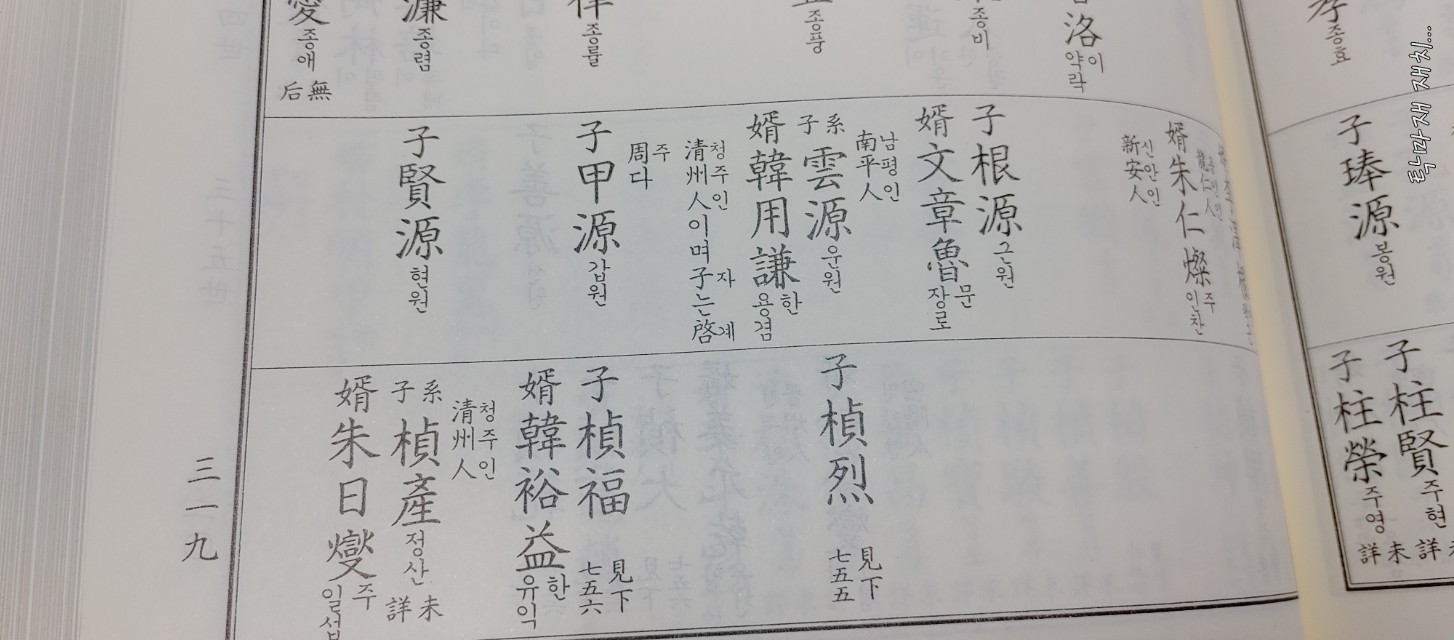 子柱賢 주현 未詳
子柱榮 주영 未詳
종효
子琫源 봉원
洛 이약락
종비
종풍
종률
濂 종렴
愛 종애 無后
婿朱仁燦 주인찬
新安人 신안인
子根源 근원
婿文章魯 문장로
南平人 남평인
系子雲源 운원
婿韓用謙 한용겸
清州人이며 子는 啓 청주인 자 계
周다 주
子甲源 갑원
子賢源 현원
子楨烈 見下七五五
子楨福 見下七五六
婿韓裕益 한유익
清州人 청주인
系子楨產 정산 未詳
婿朱日燮 주일섭
三一九
독마재 재치...